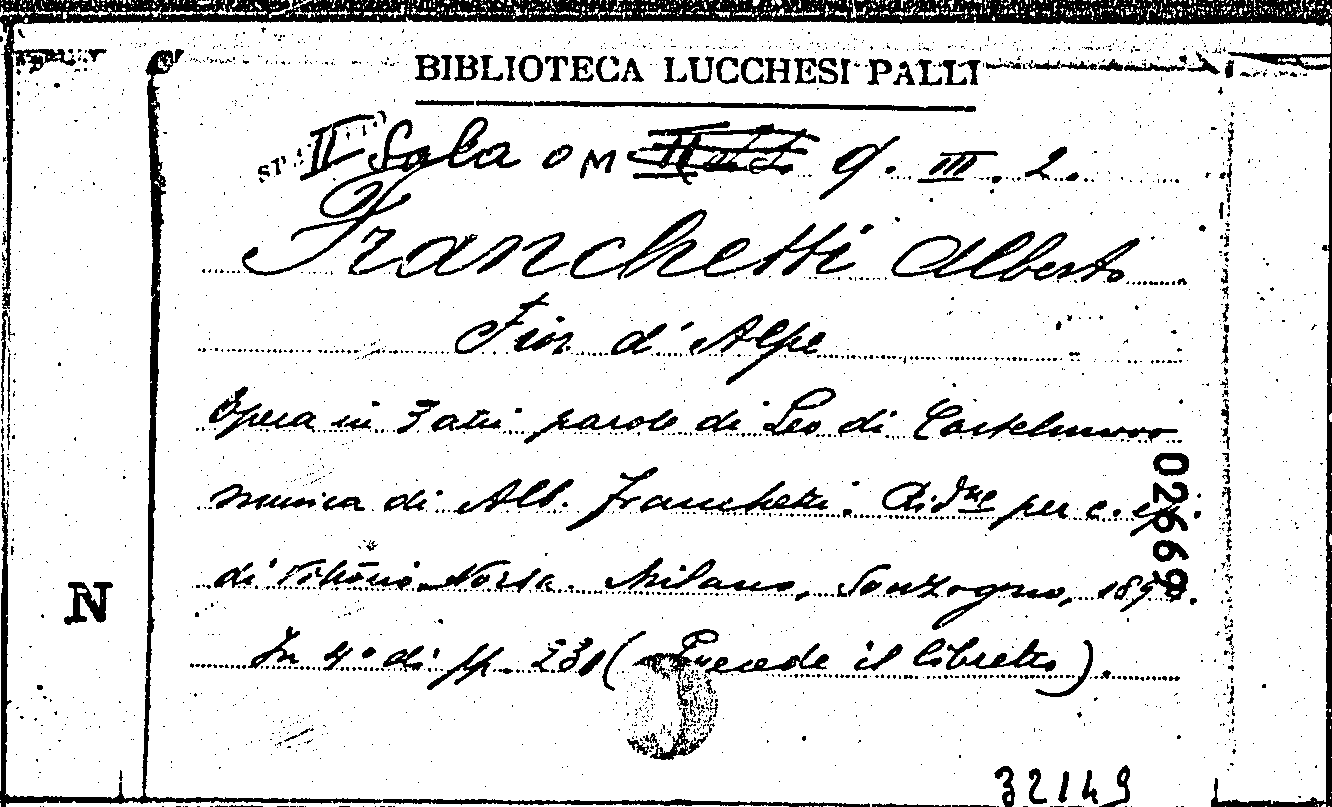 BIBLIOTECA LUCCHESI PALLI
II Sala O M III. 2.
Franchetti Alberto
Fior d'Alpe
Opera in 3 atti parole di Leo di Castelnuovo
musica di Alb. Franchetti. Rid.ne per c. e p.
di Vittorio Norsa. Milano, Sonzogno,
In 4° di pp. 231 (Precede il libretto).
02669
N
32149